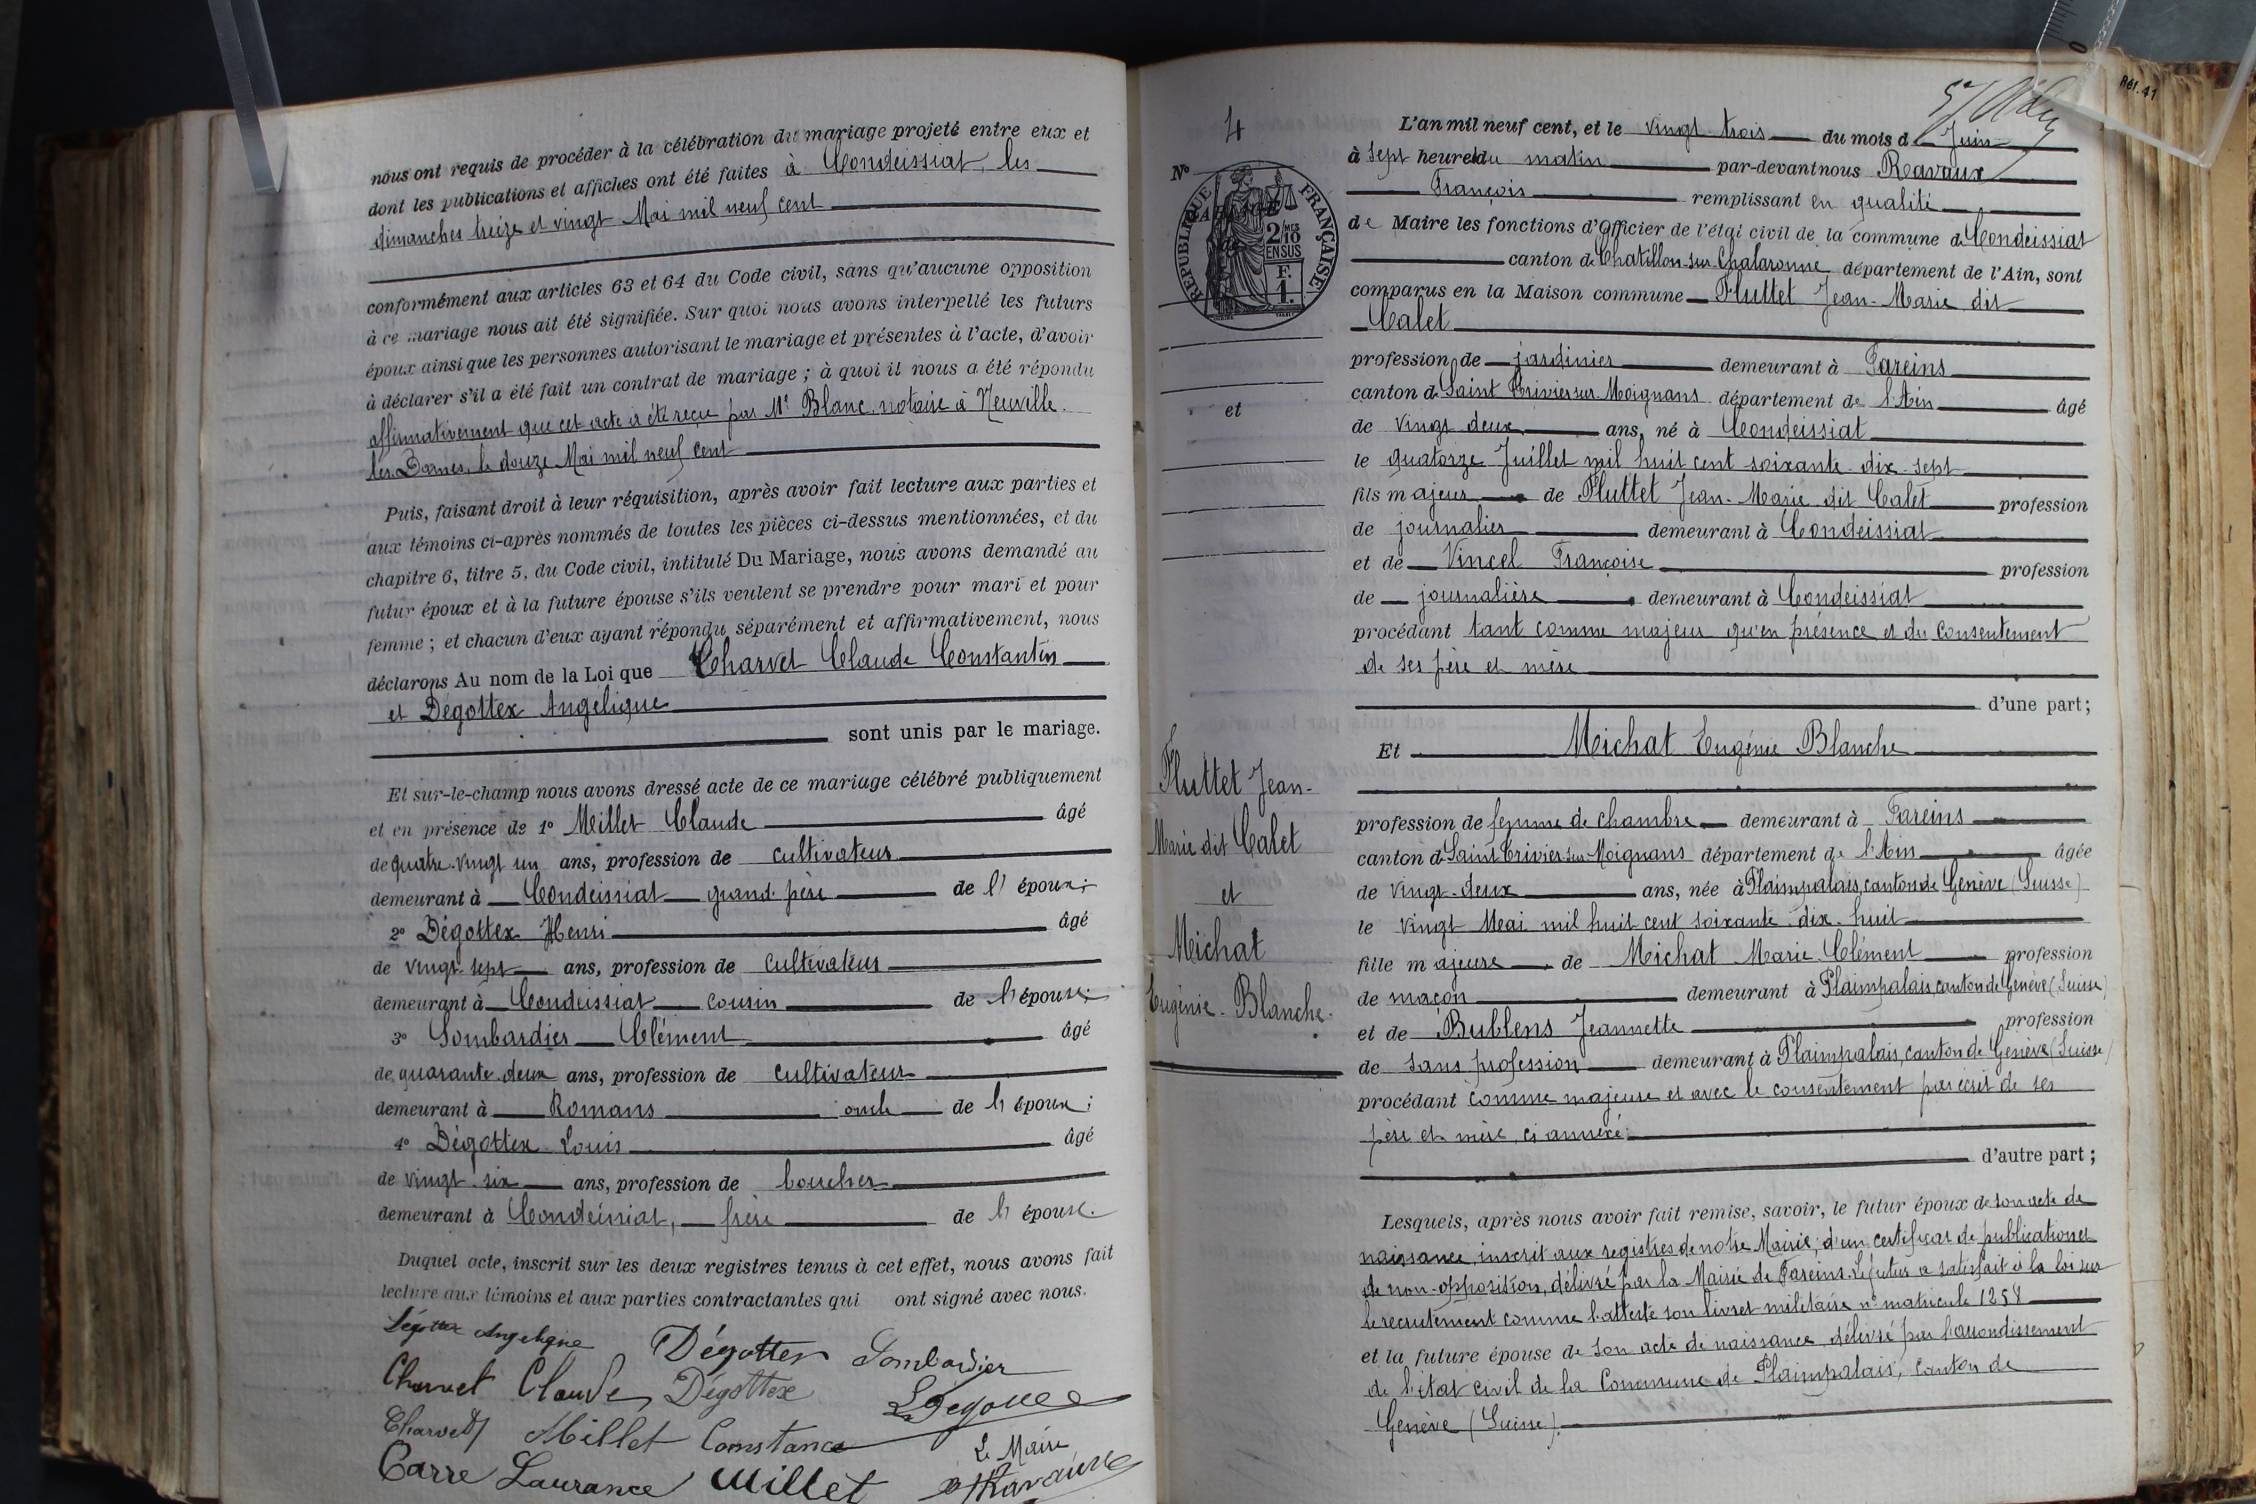 nous ont requis de procéder à la célébration du mariage projeté entre eux et
dont les publications et affiches ont été faites à Condeissiat, les
dimanches treize et vingt Mai mil neuf cent
conformément aux articles 63 et 64 du Code civil, sans qu'aucune opposition
à ce mariage nous ait été signifiée. Sur quoi nous avons interpellé les futurs
époux ainsi que les personnes autorisant le mariage et présentes à l'acte, d'avoir
à déclarer s'il a été fait un contrat de mariage ; à quoi il nous a été répondu
affirmativement que cet acte a été reçu par Mr Blanc, notaire à Neuville
les Dames, le douze Mai mil neuf cent
Puis, faisant droit à leur réquisition, après avoir fait lecture aux parties et
aux témoins ci-après nommés de toutes les pièces ci-dessus mentionnées, et du
chapitre 6, titre 5, du Code civil, intitulé Du Mariage, nous avons demandé au
futur époux et à la future épouse s'ils veulent se prendre pour mari et pour
femme ; et chacun d'eux ayant répondu séparément et affirmativement, nous
déclarons Au nom de la Loi que Charvet Claude Constantin
et Dégottex Angélique
sont unis par le mariage.
Et sur-le-champ nous avons dressé acte de ce mariage célébré publiquement
et en présence de 1° Millet Claude âgé
de quatre-vingt un ans, profession de cultivateur
demeurant à Condeissiat grand-père de l'époux ;
2° Dégottex Henri âgé
de vingt-sept ans, profession de cultivateur
demeurant à Condeissiat cousin de l'épouse ;
3° Lombardier Clément âgé
de quarante-deux ans, profession de cultivateur
demeurant à Romans oncle de l'époux ;
4° Dégottex Louis âgé
de vingt-six ans, profession de boucher
demeurant à Condeissiat, frère de l'épouse.
Duquel acte, inscrit sur les deux registres tenus à cet effet, nous avons fait
lecture aux témoins et aux parties contractantes qui ont signé avec nous.
Dégottex Angélique Dégottex Lombardier
Charvet Claude Dégottex
Charvet Millet Constance
Le Maire
Carre Laurance Millet Ravaux
4
N°
REPUBLIQUE FRANÇAISE
2/10 MES
EN SUS
F.
1.
et
Fluttet Jean-
Marie dit Calet
et
Michat
Eugénie-Blanche.
Réf. 41
L'an mil neuf cent, et le vingt-trois du mois de Juin
à sept heures du matin par-devant nous Ravaux
François remplissant en qualité
de Maire les fonctions d'Officier de l'état civil de la commune de Condeissiat
canton de Chatillon-sur-Chalaronne, département de l'Ain, sont
comparus en la Maison commune Fluttet Jean-Marie dit
Calet
profession de jardinier demeurant à Fareins
canton de Saint Trivier sur Moignans département de l'Ain âgé
de vingt-deux ans, né à Condeissiat
le quatorze Juillet mil huit cent soixante-dix-sept
fils majeur de Fluttet Jean-Marie dit Calet profession
de journalier demeurant à Condeissiat
et de Vincel Françoise profession
de journalière demeurant à Condeissiat
procédant tant comme majeur qu'en présence et du consentement
de ses père et mère
d'une part ;
Et Michat Eugénie Blanche
profession de femme de chambre demeurant à Fareins
canton de Saint Trivier sur Moignans département de l'Ain âgée
de vingt-deux ans, née à Plainpalais, canton de Genève (Suisse)
le vingt Mai mil huit cent soixante-dix-huit
fille majeure de Michat Marie-Clément profession
de maçon demeurant à Plainpalais, canton de Genève (Suisse)
et de Bublens Jeannette profession
de sans profession demeurant à Plainpalais, canton de Genève (Suisse)
procédant comme majeure et avec le consentement par écrit de ses
père et mère, ci annexé.
d'autre part ;
Lesquels, après nous avoir fait remise, savoir, le futur époux de son acte de
naissance, inscrit aux registres de notre Mairie, d'un certificat de publication et
de non-opposition, délivré par la Mairie de Fareins. Le futur a satisfait à la loi sur
le recrutement comme l'atteste son livret militaire n° matricule 1258
et la future épouse de son acte de naissance, délivré par l'arrondissement
de l'état civil de la Commune de Plainpalais, canton de
Genève (Suisse).